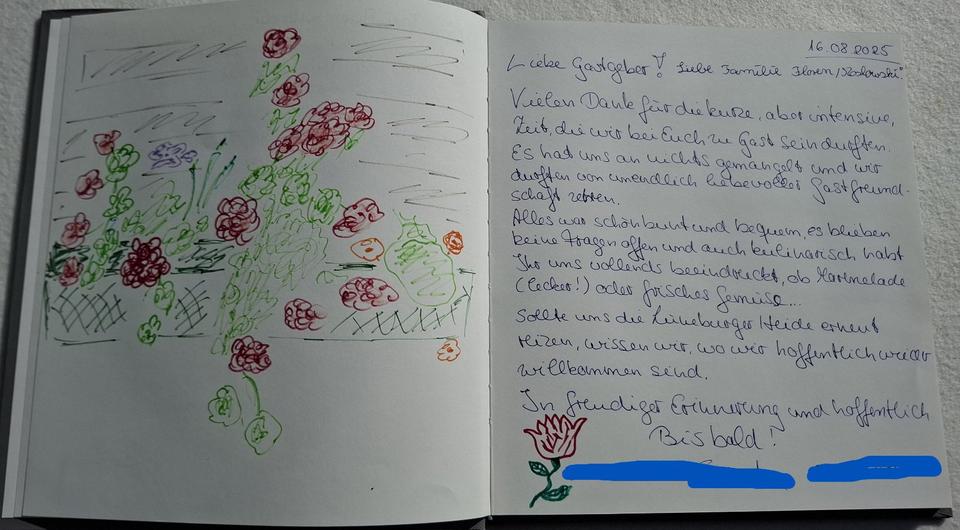 16.08.2025
Liebe Gastgeber! Liebe Familie
Vielen Dank für die kurze, aber intensive,
Zeit, die wir bei Euch zu Gast sein durften.
Es hat uns an nichts gemangelt und wir
durften von unendlich liebevoller Gastfreund-
schaft
Alles war schön bunt und bequem, es blieben
keine Fragen offen und auch kulinarisch habt
Ihr uns vollends beeindruckt, ob Marmelade
(lecker!) oder frisches Gemüse...
Sollte uns die Lüneburger Heide erneut
reizen, wissen wir, wo wir hoffentlich wieder
willkommen sind.
In freudiger Erinnerung und hoffentlich
Bis bald!